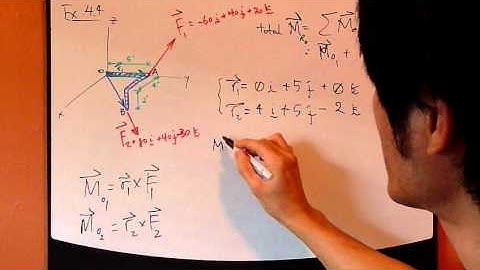 Ex 4.4
z
F₁ = -60i+40j+20k
total M_R₀ = Σ M₀
= M₀₁ +
5'
A
y
x
B
F₂ = 80i+40j-30k
r₁ = 0i + 5j + 0k
r₂ = 4i + 5j - 2k
M
M₀₁ = r₁ × F₁
M₀₂ = r₂ × F₂